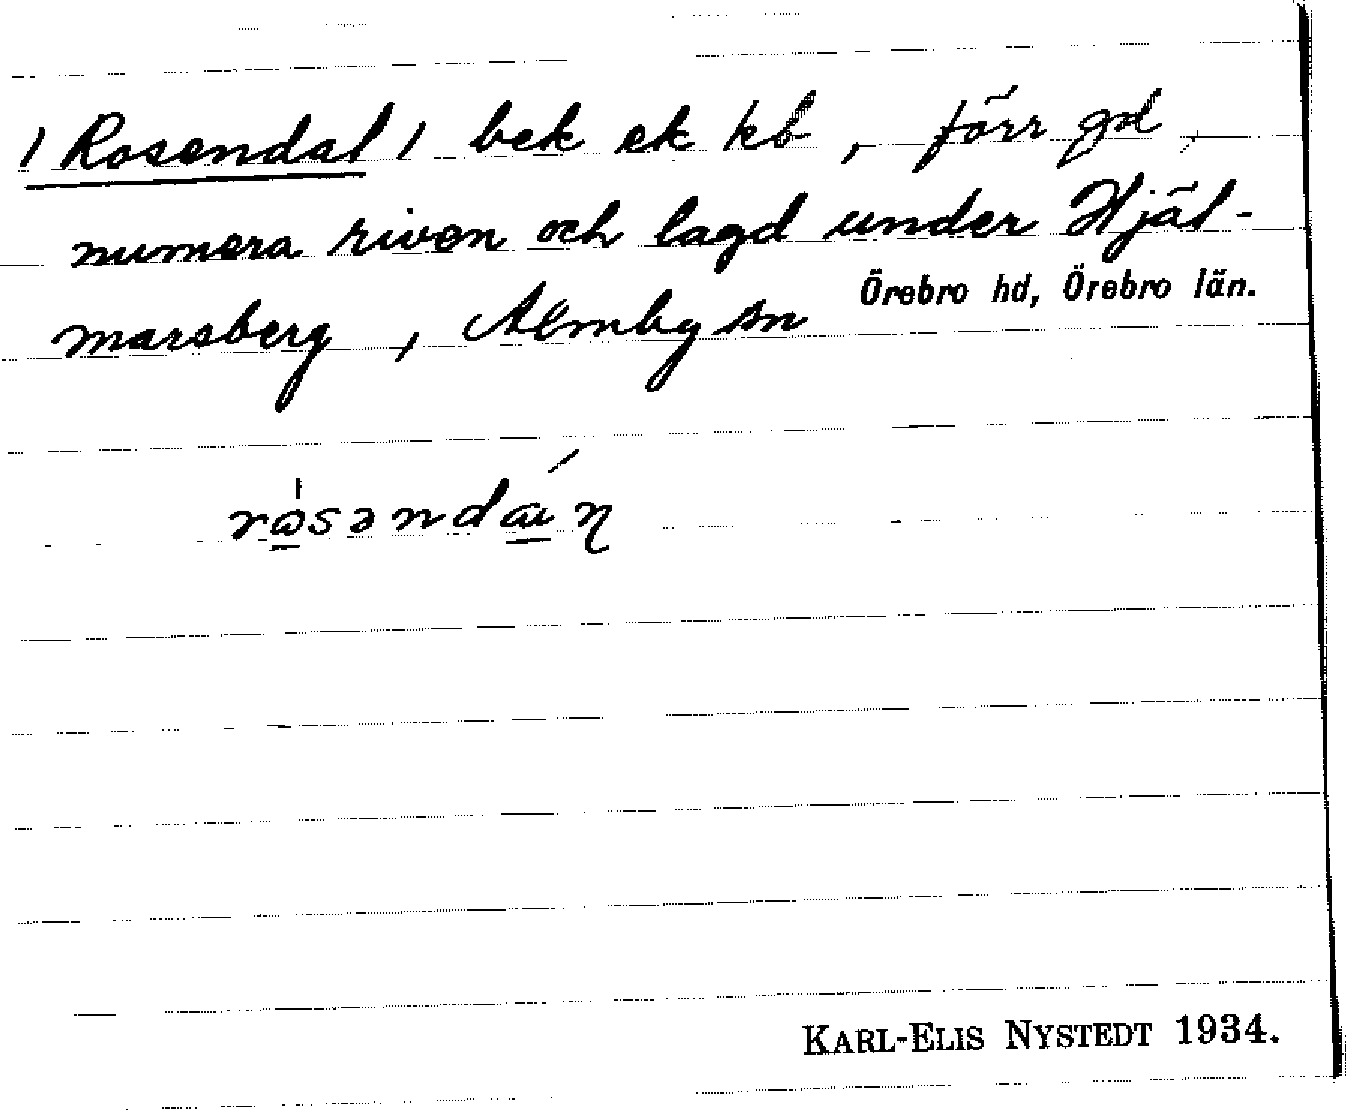 / Rosendal / bek ek kb, förr gd,
numera riven och lagd under Hjäl-
marsberg, Almby sn Örebro hd, Örebro län.
KARL-ELIS NYSTEDT 1934.